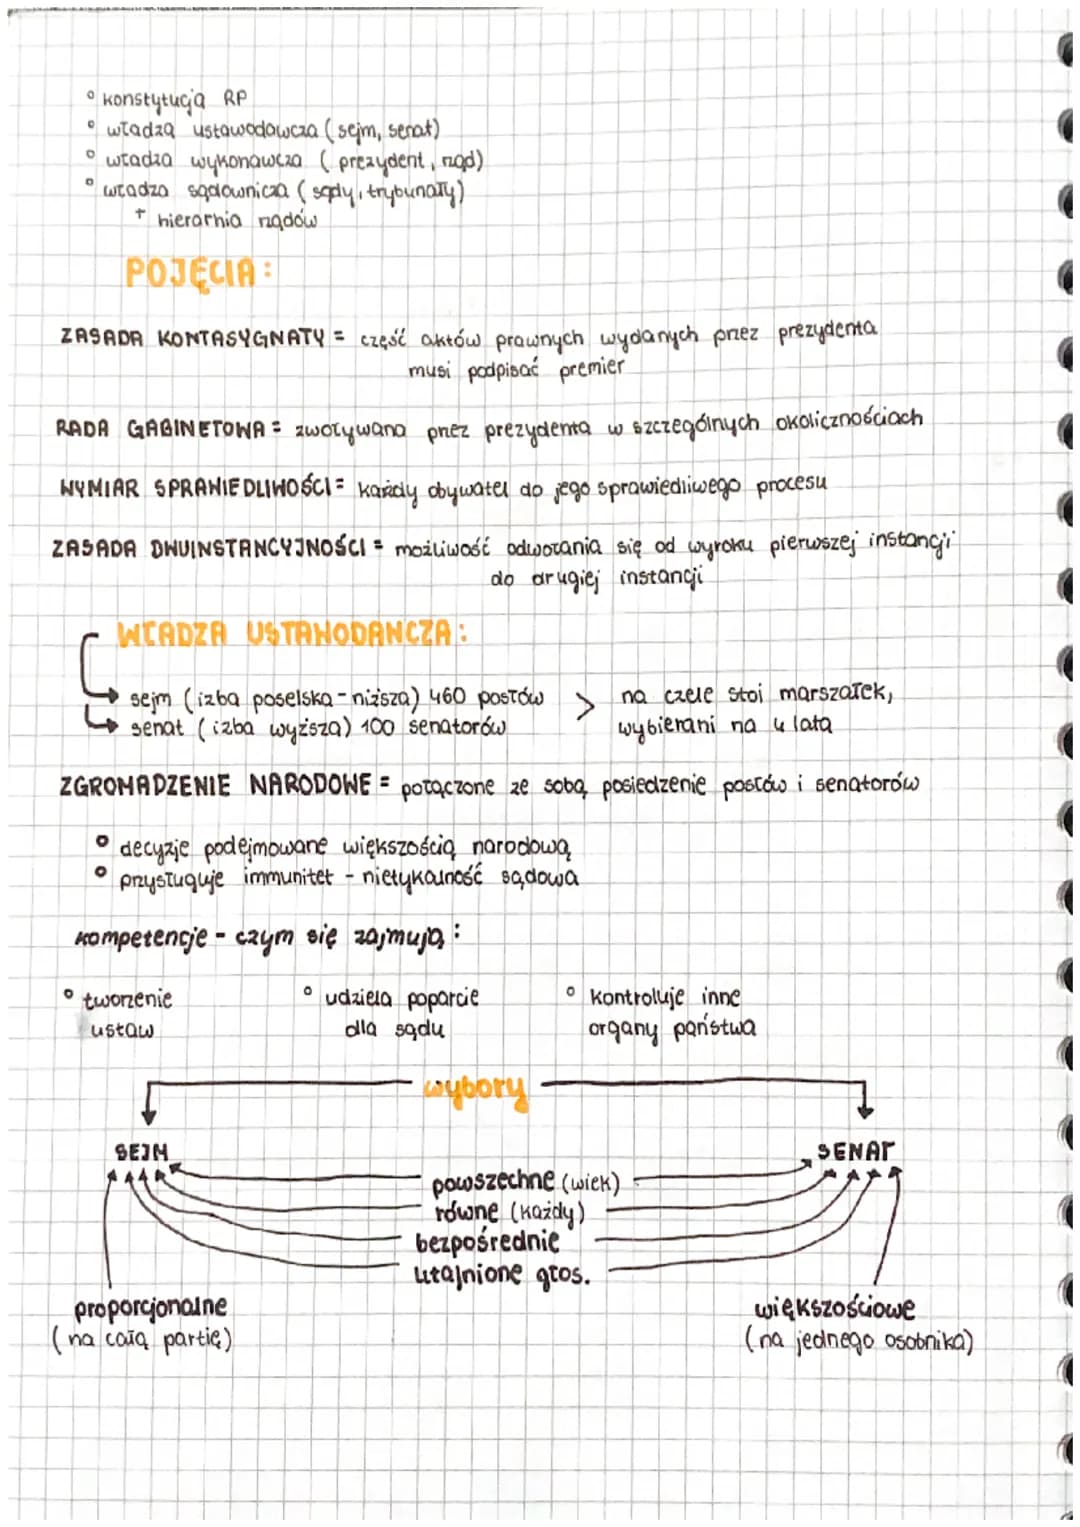 ° konstytucja RP
° władzą ustawodawcza (sejm, senat)
° władza wykonawcza (prezydent, rząd)
° władza sądownicza (sądy, trybunały)
+ hierarhia rządów
POJĘCIA:
ZASADA KONTASYGNATY = część aktów prawnych wydanych przez prezydenta
musi podpisać premier
RADA GABINETOWA = zwoływana przez prezydenta w szczególnych okolicznościach
WYMIAR SPRAWIEDLIWOŚCI = każdy obywatel do jego sprawiedliwego procesu
ZASADA DWUINSTANCYJNOŚCI = możliwość odwołania się od wyroku pierwszej instancji
do drugiej instancji
WŁADZA USTAWODAWCZA:
→ sejm (izba poselska - niższa) 460 posłów > na czele stoi marszałek,
→ senat (izba wyższa) 100 senatorów wybierani na 4 lata
ZGROMADZENIE NARODOWE = połączone ze sobą posiedzenie posłów i senatorów
° decyzje podejmowane większością narodową
° przysługuje immunitet - nietykalność sądowa
kompetencje - czym się zajmują:
° tworzenie ° udziela poparcie ° kontroluje inne
ustaw dla sądu organy państwa
wybory
SEJM SENAT
powszechne (wiek)
równe (każdy)
bezpośrednie
utajnione głos.
proporcjonalne większościowe
(na całą partię) (na jednego osobnika)